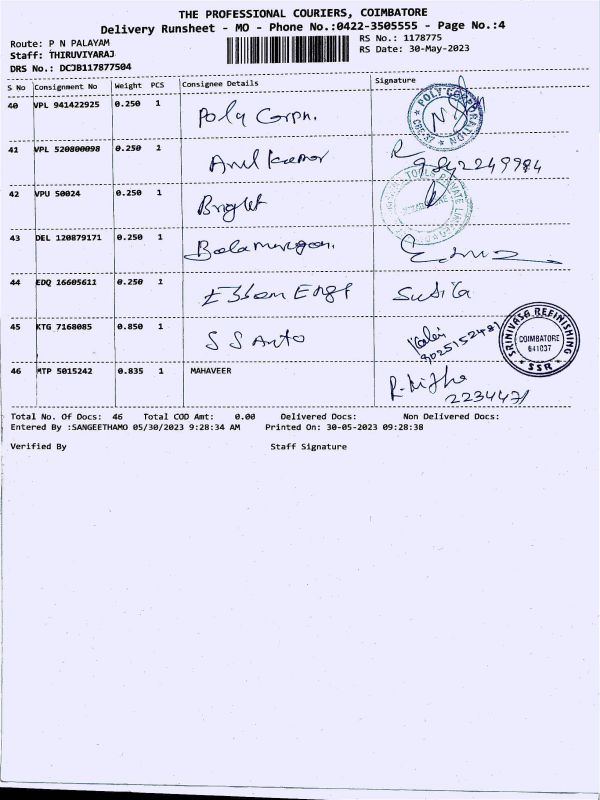 THE PROFESSIONAL COURIERS, COIMBATORE
Delivery Runsheet - MO - Phone No.:0422-3505555 - Page No.:4
Route: P N PALAYAM
RS No.: 1178775
Staff: THIRUVIYARAJ
RS Date: 30-May-2023
DRS No.: DCJB117877504
S No Consignment No Weight PCS Consignee Details Signature
40 VPL 941422925 0.250 1 Poly Corpn. POLY CORPORATION CBE-37
41 VPL 520800098 0.250 1 Anil Kumar 9842249984
42 VPU 50024 0.250 1 Bright TOOLS PRIVATE LIMITED
43 DEL 120879171 0.250 1 Balamurugan.
44 EDQ 16605611 0.250 1 Essen Engg Susila
45 KTG 7168085 0.850 1 S S Auto Kalai 9025152481 SRINIVASA REFINISHING COIMBATORE 641037 SSR
46 MTP 5015242 0.835 1 MAHAVEER R. Nithe 2234471
Total No. Of Docs: 46 Total COD Amt: 0.00 Delivered Docs: Non Delivered Docs:
Entered By :SANGEETHAMO 05/30/2023 9:28:34 AM Printed On: 30-05-2023 09:28:38
Verified By Staff Signature